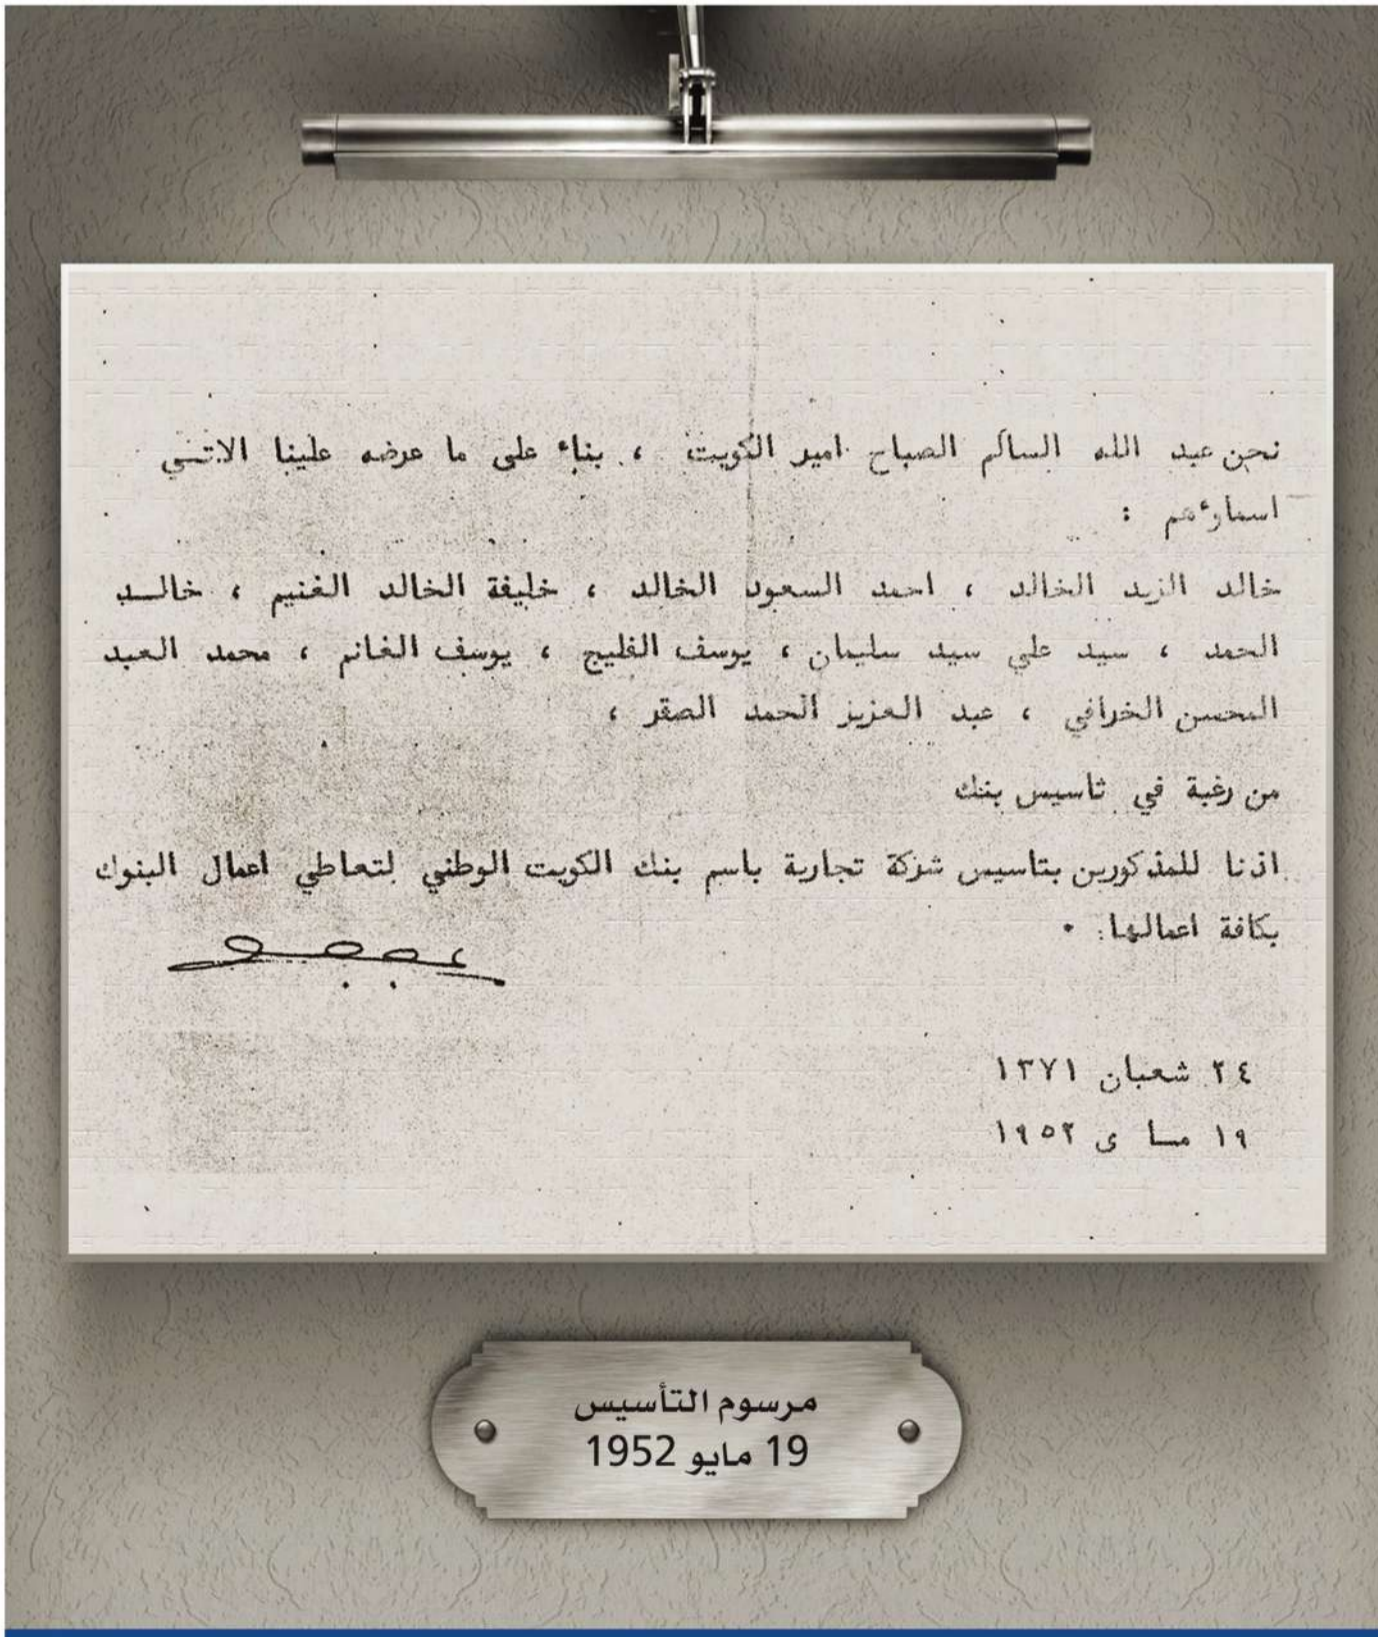 نحن عبد الله السالم الصباح امير الكويت ، بناء على ما عرضه علينا الاتـي
اسماؤهم :
خالد الزيد الخالد ، احمد السعود الخالد ، خليفة الخالد الغنيم ، خالـد
الحمد ، سيد علي سيد سليمان ، يوسف الفليج ، يوسف الغانم ، محمد العبد
المحسن الخرافي ، عبد العزيز الحمد الصقر ،
من رغبة في تاسيس بنك
اذنا للمذكورين بتاسيس شركة تجارية باسم بنك الكويت الوطني لتعاطي اعمال البنوك
بكافة اعمالها .
٢٤ شعبان ١٣٧١
١٩ مـا ى ١٩٥٢
مرسوم التأسيس
19 مايو 1952